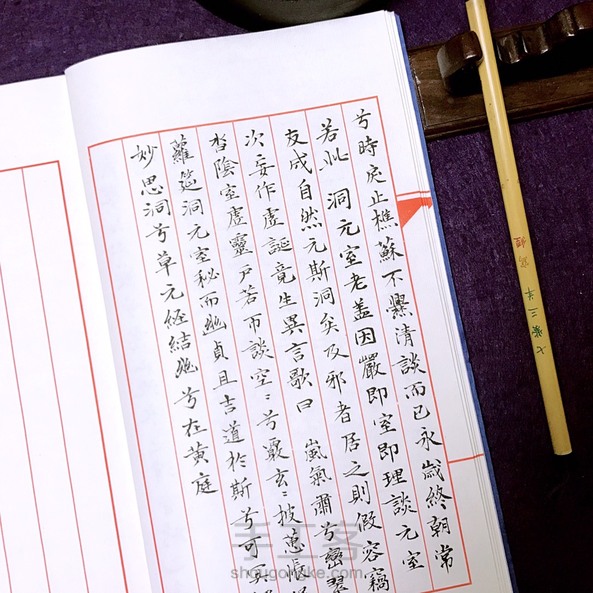 兮時定止樵蘇不爨清談而已永歲終朝常
若此 洞元室老盖因巖即室即理談元室
友成自然元斯洞矣及邪者居之則假容竊
次妄作虛誕竟生異言歌曰 嵐氣肅兮巒翠
杳陰室虛靈戶若帀談空〻兮覈玄〻披蕙帳
蘿筵洞元室秘而幽貞且吉道於斯兮可冥
妙思洞兮草元經結幽兮在黄庭
七紫三羊
手工客
shougongke.com